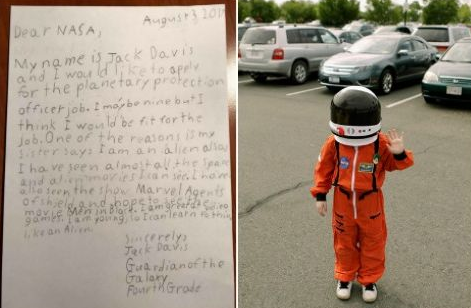 August 3, 2017
Dear NASA,
My name is Jack Davis
and I would like to apply
for the planetary protection
officer job. I may be nine but I
think I would be fit for the
job. One of the reasons is my
sister says I am an alien also
I have seen almost all the space
and alien movies I can see. I have
also seen the show Marvel Agents
of Shield and hope to see the
movie Men in Black. I am great at video
games. I am young, so I can learn to think
like an Alien.
Sincerely,
Jack Davis
Guardian of the
Galaxy
Fourth Grade